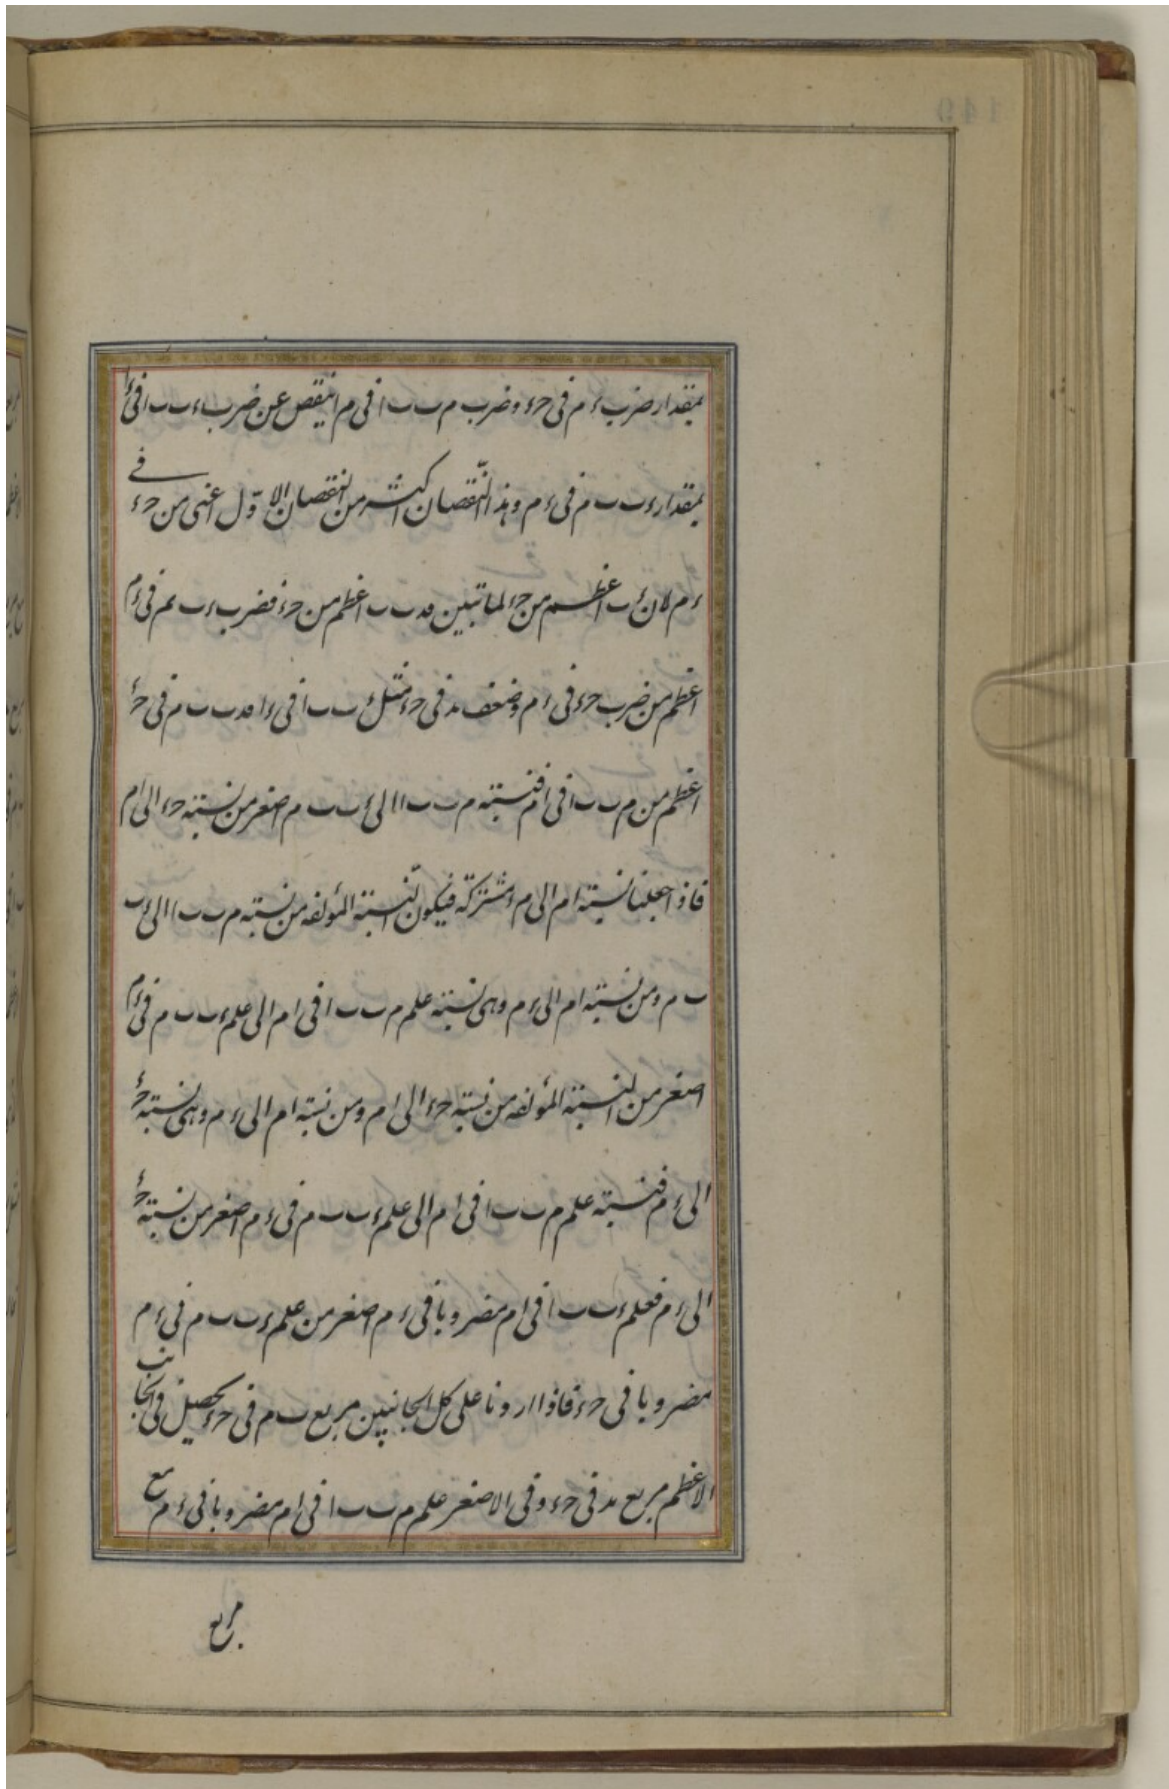 بمقدار ضرب ء م فى حء وضرب م ب ب ا فى ا م انيقص عن ضرب ء ب ب ا فى ءا
بمقدار ء ب ب م فى ء م وهذا النّقصان اكثر من النقصان الاوّل اعنى من حء فے
ء م لان ء ب اعظم من حء لما تبين مد ب ب اعظم من حء فضرب ء ب ب م فى ء م
اعظم من ضرب حء فى ء م وضعف مد فى حء مثل ء ب ب ا فى ءا مد ب ب م فى حء
اعظم من م ب ب ا فى ا م فنسبته م ب ب ا الى ء ب ب م اصغر من نسبته حء الى ا م
فاذا جعلنا نسبته ا م الى م ء مشتركته فيكون النّسبته المؤلفه من نسبته م ب ب ا الى ء ب
ب م ومن نسبته ا م الى ء م وهى نسبته علم م ب ب ا فى ا م الى علم ء ب ب م فى ء م
اصغر من النسبته المؤلفه من نسبته حء الى ا م ومن نسبته ا م الى ء م وهى نسبته حء
الى ء م فنسبته علم م ب ب ا فى ا م الى علم ء ب ب م فى ء م اصغر من نسبته حء
الى ء م فعلم ء ب ب ا فى ا م مضروبا فى ء م اصغر من علم ء ب ب م فى ء م
مضروبا فى حء فاذا اردنا على كل الجانبين مربع ب م فى حء يحصيل فى الجانب
الاعظم مربع مد فى حء وفى الاصغر علم م ب ب ا فى ا م مضروبا فى ء م مع
مربع